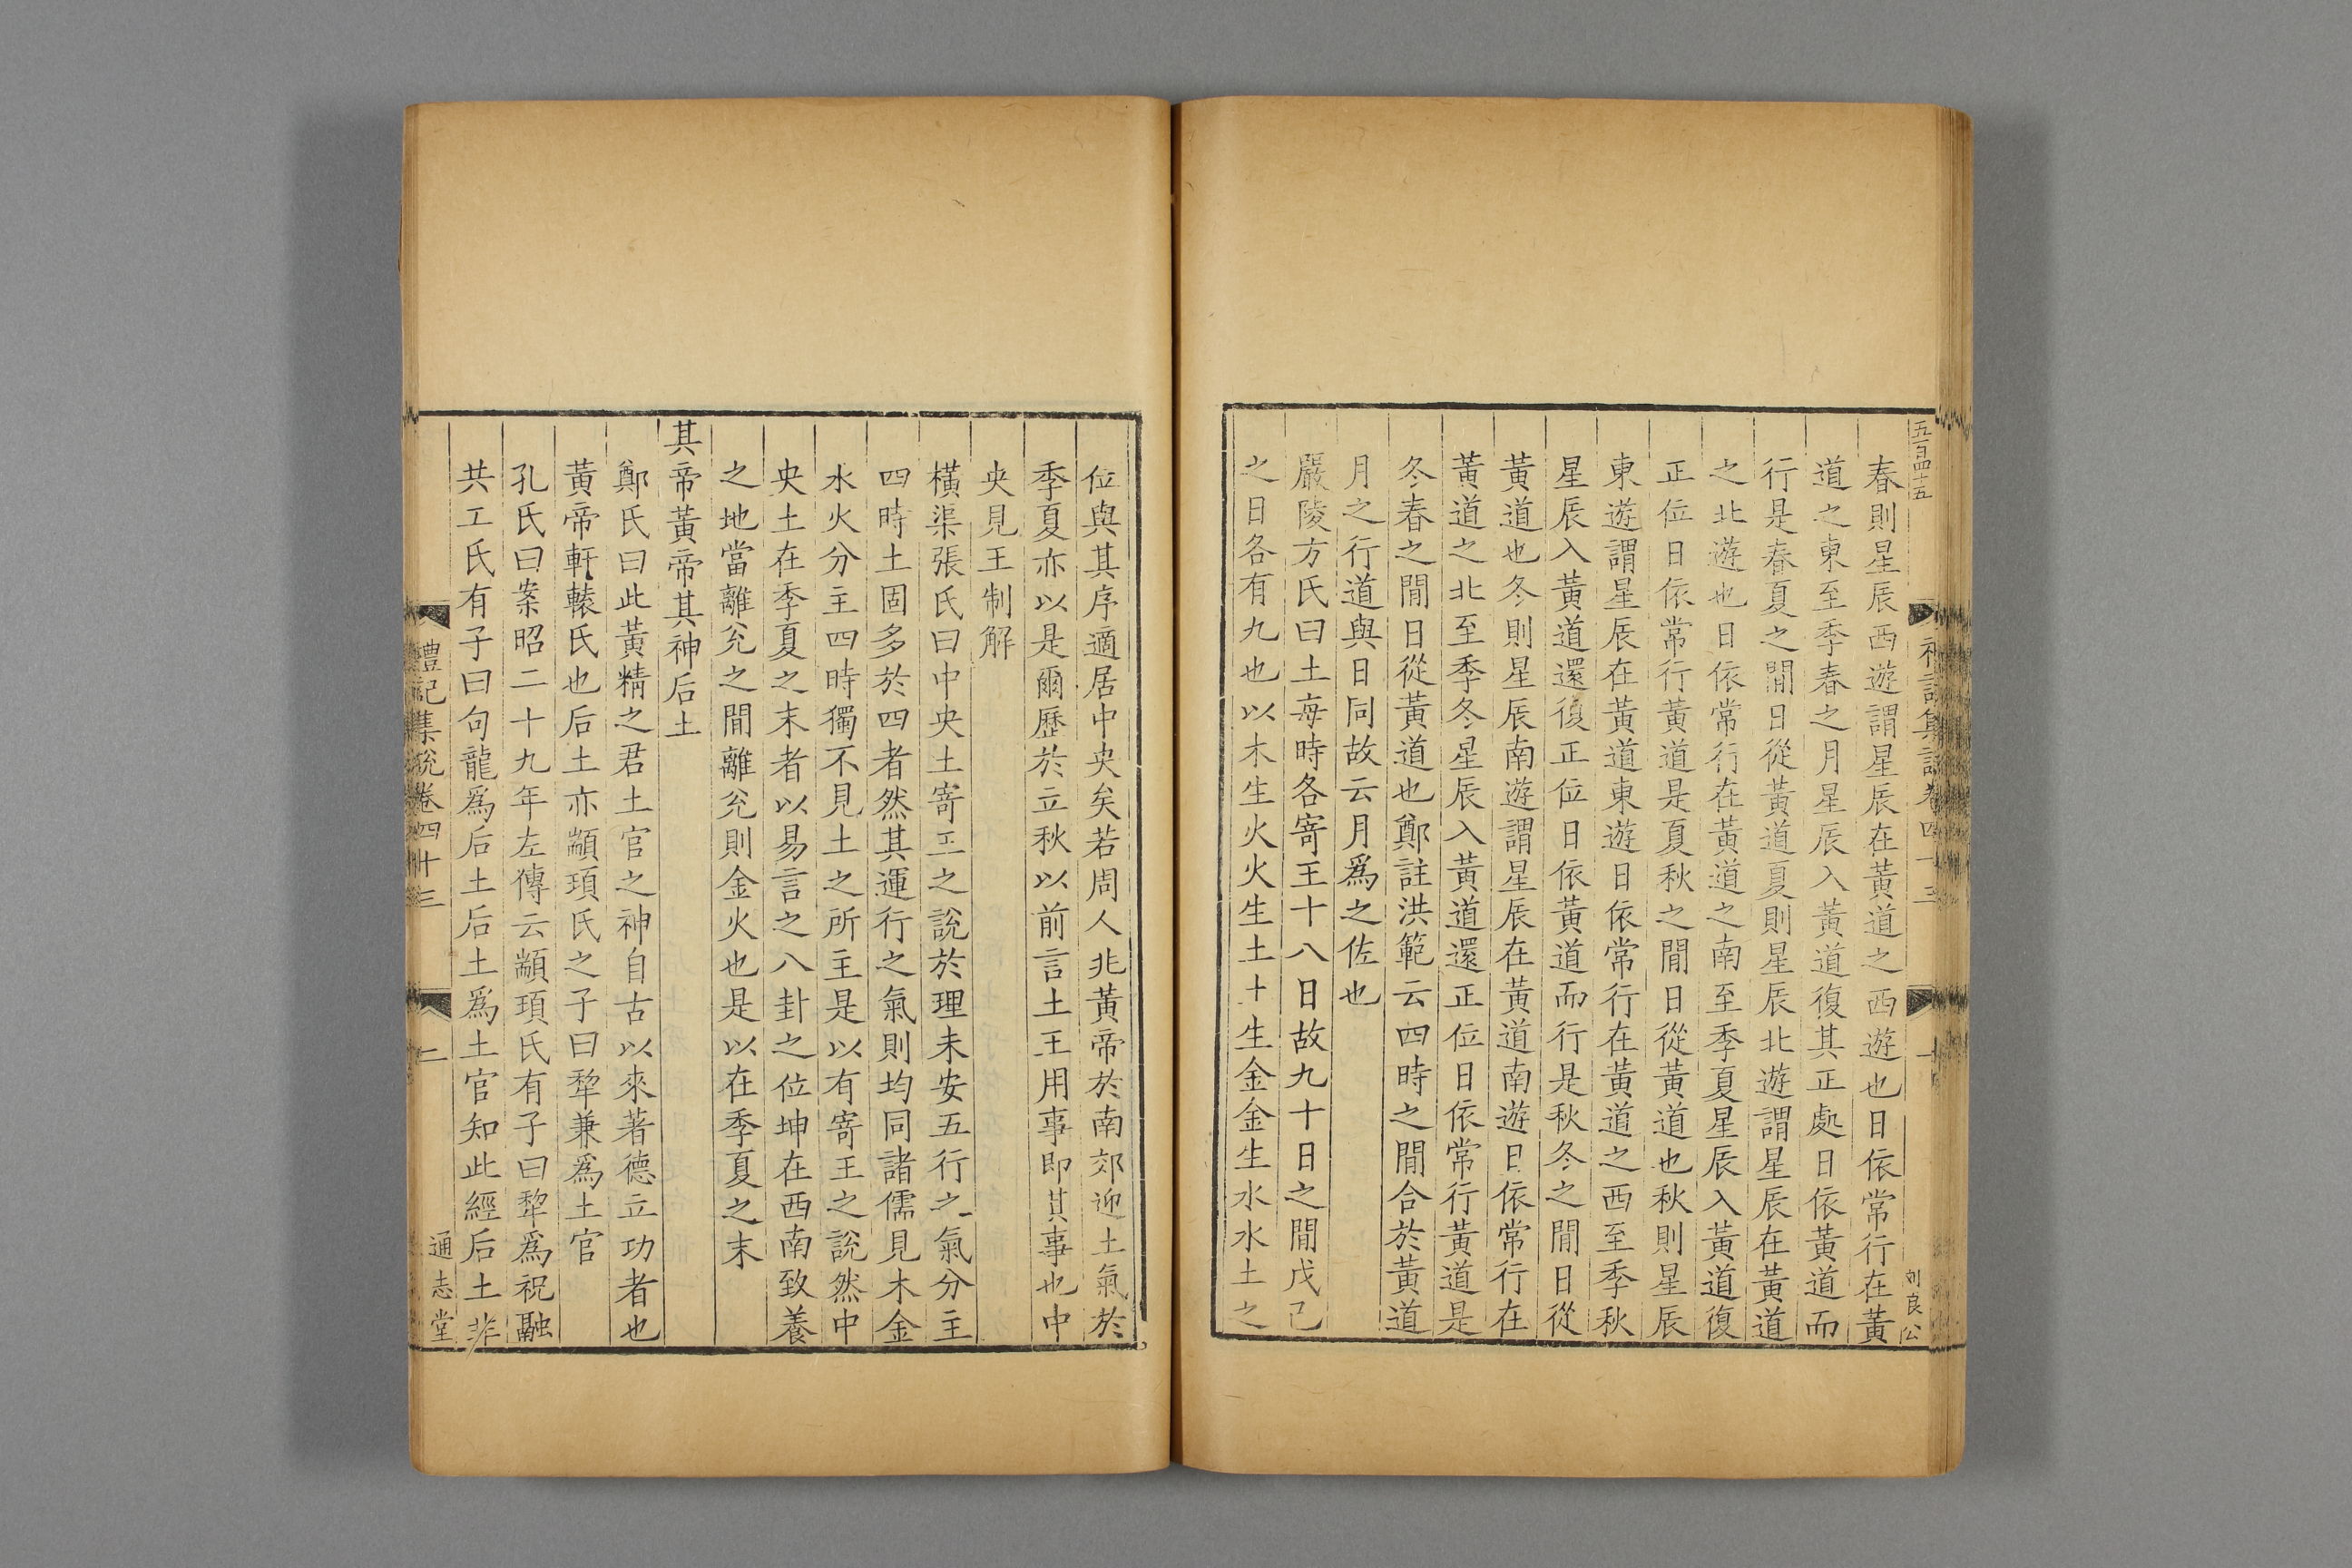 五百四十五
春則星辰西遊謂星辰在黃道之西遊也日依常行在黃
道之東至季春之月星辰入黃道復其正處日依黃道而
行是春夏之間日從黃道夏則星辰北遊謂星辰在黃道
之北遊也日依常行在黃道之南至季夏星辰入黃道復
正位日依常行黃道是夏秋之間日從黃道也秋則星辰
東遊謂星辰在黃道東遊日依常行在黃道之西至季秋
星辰入黃道還復正位日依黃道而行是秋冬之間日從
黃道也冬則星辰南遊謂星辰在黃道南遊日依常行在
黃道之北至季冬星辰入黃道還正位日依常行黃道是
冬春之間日從黃道也鄭註洪範云四時之間合於黃道
月之行道與日同故云月為之佐也
嚴陵方氏曰土每時各寄王十八日故九十日之間戊己
之日各有九也以木生火火生土十生金金生水水土之
位與其序適居中央矣若周人兆黃帝於南郊迎土氣於
季夏亦以是爾歷於立秋以前言土王用事即其事也中
央見王制解
橫渠張氏曰中央土寄王之說於理未安五行之氣分主
四時土固多於四者然其運行之氣則均同諸儒見木金
水火分主四時獨不見土之所主是以有寄王之說然中
央土在季夏之末者以易言之八卦之位坤在西南致養
之地當離兊之間離兊則金火也是以在季夏之末
其帝黃帝其神后土
鄭氏曰此黃精之君土官之神自古以來著德立功者也
黃帝軒轅氏也后土亦顓頊氏之子曰犂兼為土官
孔氏曰案昭二十九年左傳云顓頊氏有子曰犂為祝融
共工氏有子曰句龍為后土后土為土官知此經后土非
禮記集說卷四十三 二 通志堂